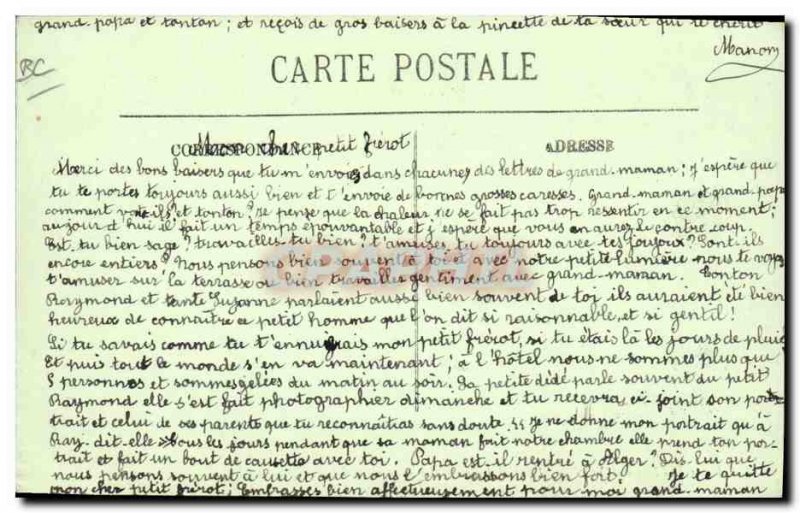 grand-papa et tonton ; et reçois de gros baisers à la pincette de ta sœur qui te chérit
Manon
BC
CARTE POSTALE
CORRESPONDANCE ADRESSE
Mon cher petit frérot
Merci des bons baisers que tu m'envoies dans chacunes des lettres de grand-maman ; j'espère que
tu te portes toujours aussi bien et t'envoie de bonnes grosses caresses. Grand-maman et grand-papa
comment vont-ils et tonton ? Je pense que la chaleur ne se fait pas trop ressentir en ce moment ;
aujourd'hui il fait un temps épouvantable et j'espère que vous en aurez le contre coup.
Est-tu bien sage ? travailles-tu bien ? t'amuses-tu toujours avec tes joujoux ? Sont-ils
encore entiers ? Nous pensons bien souvent à toi et avec notre petite lumière nous te voyons
t'amuser sur la terrasse ou bien travailler gentiment avec grand-maman. Tonton
Raymond et tante Suzanne parlaient aussi bien souvent de toi ils auraient été bien
heureux de connaître ce petit homme que l'on dit si raisonnable et si gentil !
Si tu savais comme tu t'ennuierais mon petit frérot, si tu étais là les jours de pluie
Et puis tout le monde s'en va maintenant ; à l'hôtel nous ne sommes plus que
5 personnes et sommes gelées du matin au soir. La petite dédé parle souvent du petit
Raymond elle s'est fait photographier dimanche et tu recevras ci-joint son por-
trait et celui de ses parents que tu reconnaîtras sans doute. "Je ne donne mon portrait qu'à
Ray" dit-elle. Tous les jours pendant que sa maman fait notre chambre elle prend ton por-
trait et fait un bout de causette avec toi. Papa est-il rentré à Alger ? Dis-lui que
nous pensons souvent à lui et que nous l'embrassons bien fort. Je te quitte
mon cher petit frérot ; Embrasses bien affectueusement pour moi grand-maman